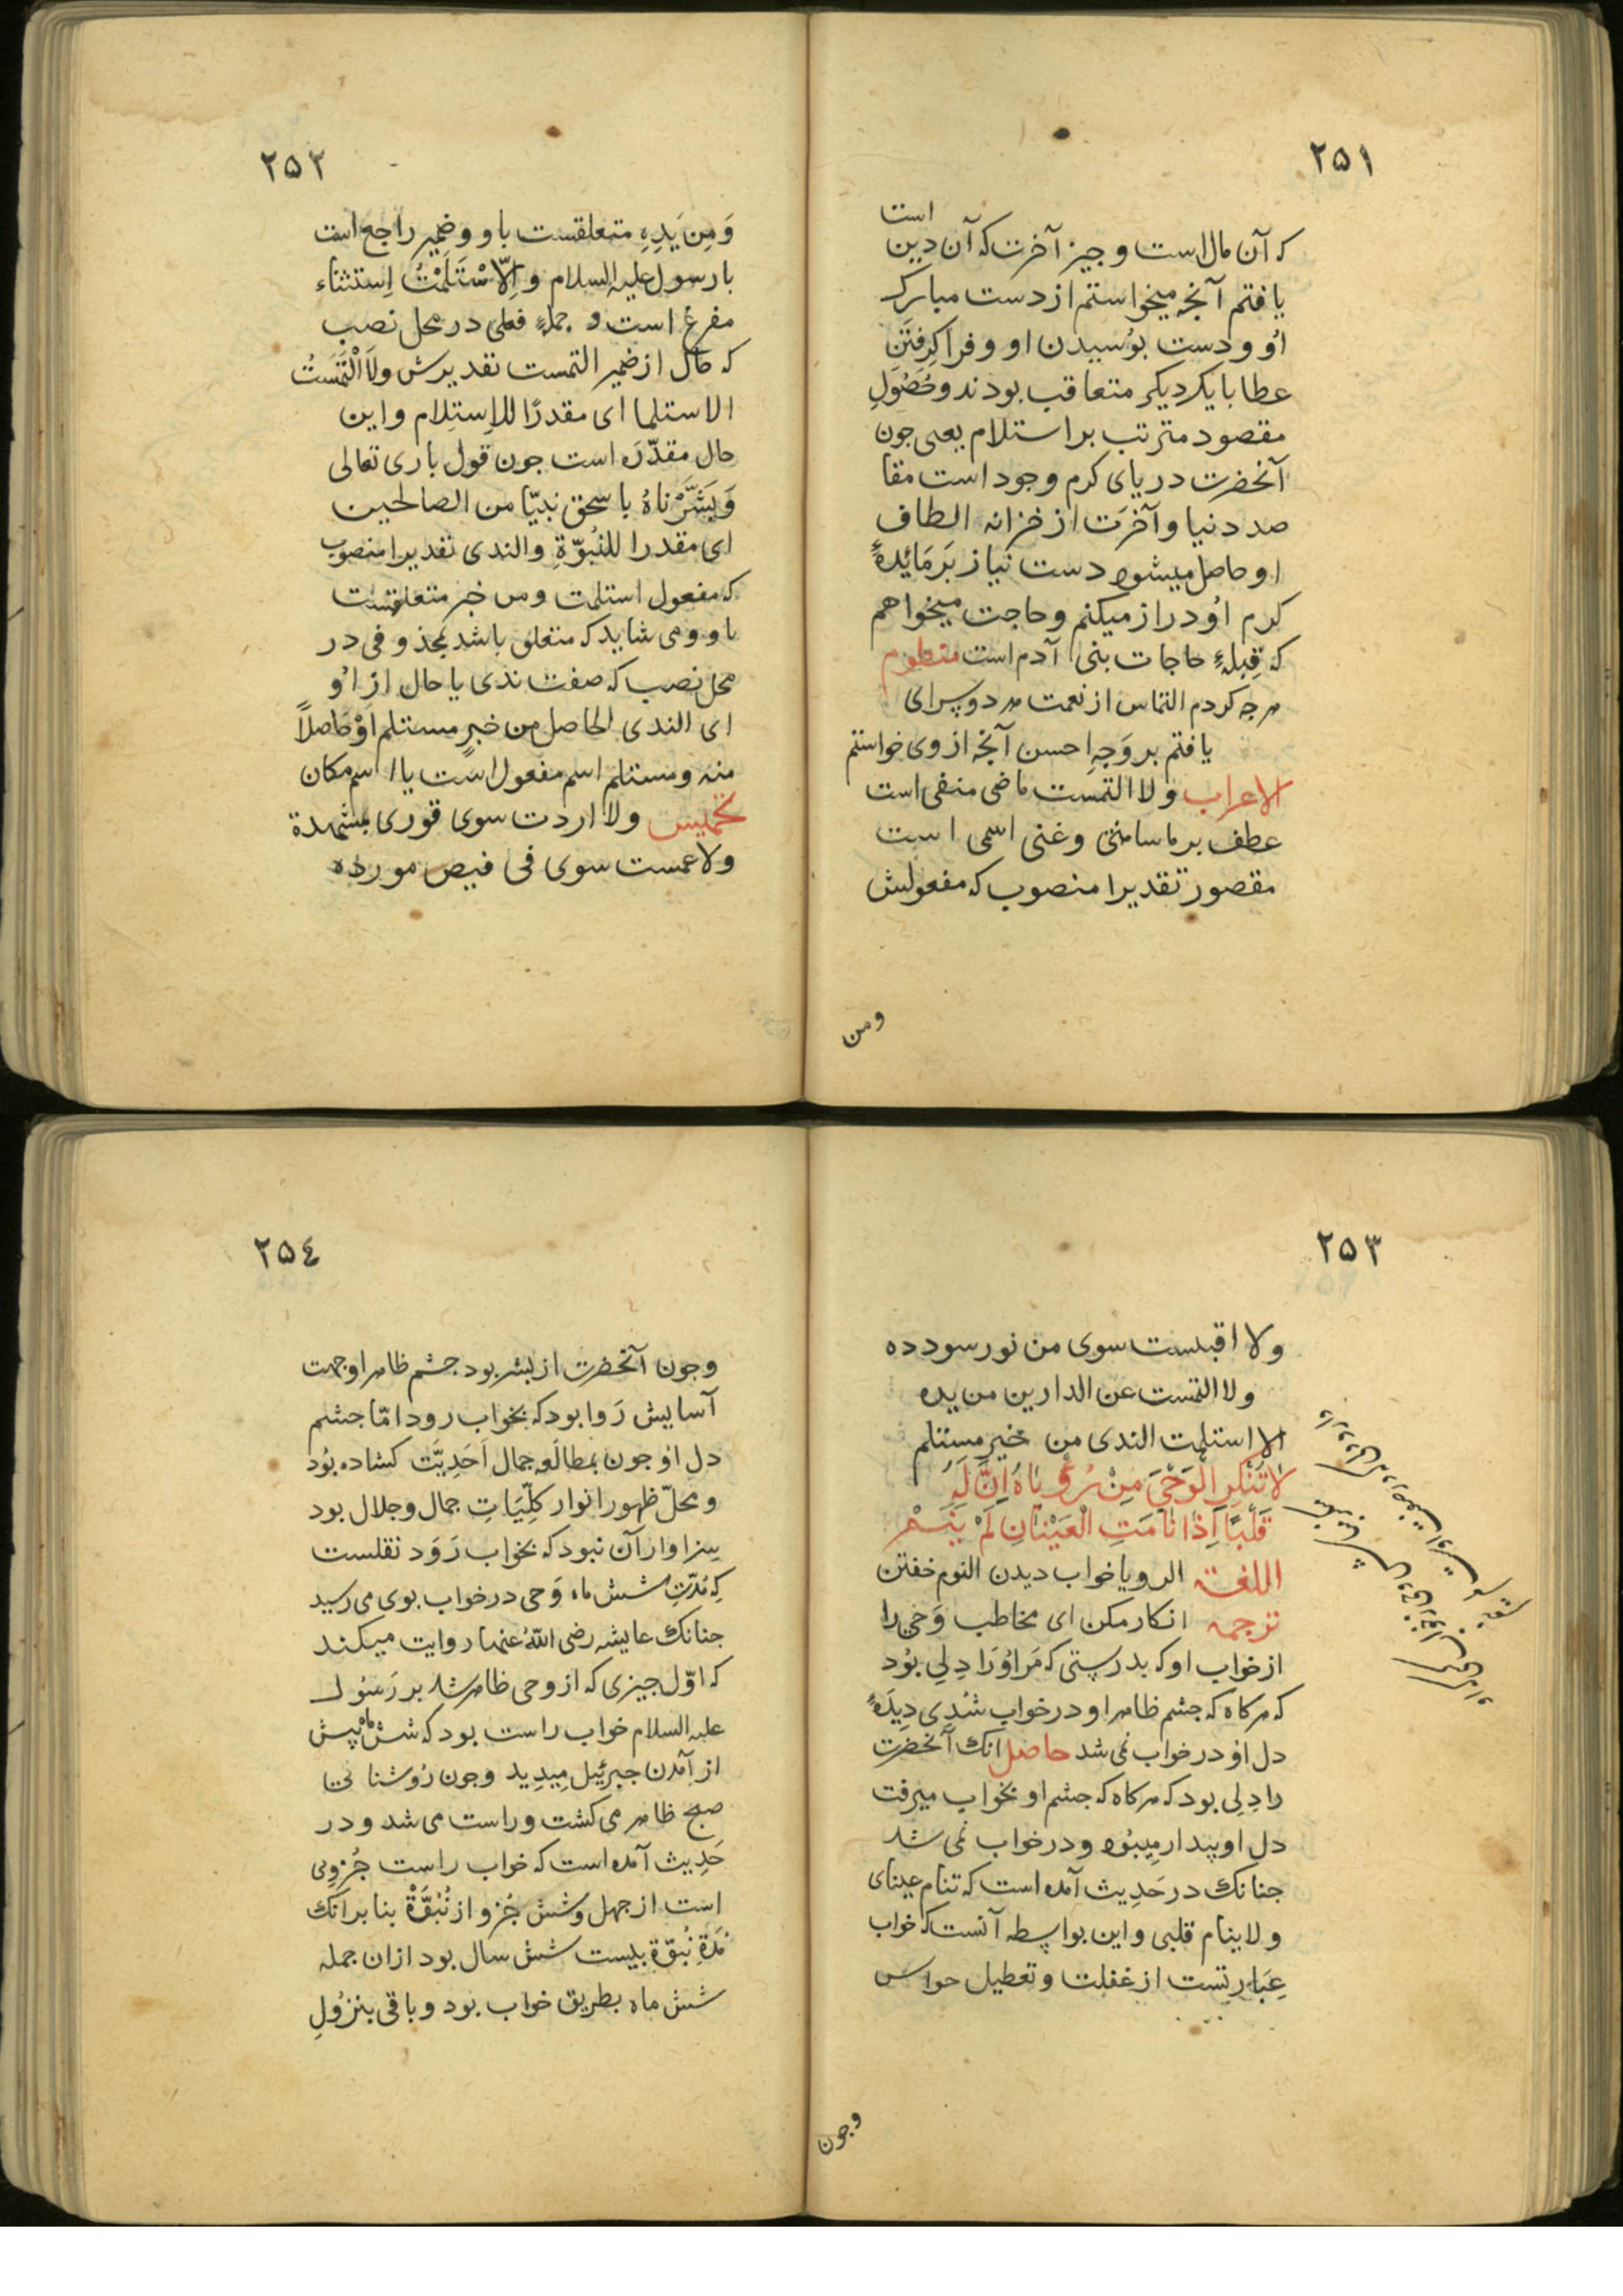 ٢٥١
است
که آن مال است و جیز آخرت که آن دین
یافتم آنجه میخواستم از دست مبارک
اُو و دستِ بوُسیدن او و فرا کِرفتَن
عطا با یکردیکر متعاقب بودند و حُصُولِ
مقصود مترتب بر استلام یعنی جون
آنحضرت دریای کرم وجود است مقا
صد دنیا و آخرَت از خزانه الطاف
او حاصل میشود دست نیاز بَر مَائِدهٔ
کرم اوُ دراز میکنم و حاجت میخواهم
که قِبلهٔ حاجات بنی آدم است منظوم
هرجه کردم التماس از نعمت هر دو سرای
یافتم بر وَجهِ احسن آنجه از وی خواستم
الاعراب ولا التمست ماضی منفی است
عطف بر ما سامنی وغنی اسمی است
مقصور تقدیرا منصوب که مفعولش
ومن
٢٥٢
وَمِن یَدِهِ متعلقست باو و ضمیر راجع است
با رسول علیه السلام و اِلّا سْتَلَمْتُ اِستثناء
مفرغ است و جملهٔ فعلی در محل نصب
که حال از ضمیر التمست تقدیرش ولَا الْتَمَسْتُ
الا ستلما ای مقدرًا للاِستِلام و این
حال مقدّرَه است جون قول باری تعالی
وَبَشَّرْنَاهُ باسحق نبیّا من الصالحین
ای مقدرا للنُبوّةِ والندی تقدیرا منصوب
که مفعول استلمت ومن خیر متعلقست
باو و می شاید که متعلق باشد بمحذوفی در
محل نصب که صفت ندی یا حال از اُو
ای الندی الحاصل من خیرٍ مستلم اَوْ حَاصلاً
منه ومستلم اسم مفعول است یا اسم مکان
تخمیس ولا اردت سوی فوری بمشهده
ولا عمست سوی فی فیض مورده
٢٥٣
ولا اقبست سوی من نور سودده
ولا التمست عن الدارین من یده
الا استلمت الندی من خیر مستلم
لَا تُنْکِرِ الْوَحْیَ مِنْ رُؤْیَاهُ اِنَّ لَهُ
قَلْبًا اِذَا نَامَتِ الْعَیْنَانِ لَمْ یَنَمِ
اللغة الرویا خواب دیدن النوم خفتن
ترجمه انکار مکن ای مخاطب وَحی را
از خواب او که بدرستی که مَر اوُرَا دِلِی بوُد
که هرکاه که جشم ظاهر او در خواب شدی دِیدَهٔ
دل اوُ در خواب نمی شد حاصل انک آنحضرت
را دِلی بود که هرکاه که جشم او بخواب میرفت
دل او بیدار میبوُد و در خواب نمی شد
جنانک در حَدِیث آمده است که تنام عینای
ولا ینام قلبی و این بواسطه آنست که خواب
عِبَارتست از غفلت و تعطیل حواس
وجون
٢٥٤
وجون آنحضرت از بشر بود جشم ظاهر او جهت
آسایش رَوا بود که بخواب رود امّا جشم
دل اوُ جون بمطالعهٔ جمال اَحَدِیَّت کشاده بوُد
و محلّ ظهور انوار کلِّیَاتِ جمال و جلال بود
سزاوار آن نبود که بخواب رَوَد نقلست
که مُدّتِ شش ماه وَحی در خواب بوی می رسید
جنانک عایشه رضی اللهُ عنها روایت میکند
که اوّل جیزی که از وحی ظاهر شد بر رَسوُل
علیه السلام خواب راست بود که شش ماه پیش
از آمدن جبرئیل میدید وجون روُشنائی
صبح ظاهر می کشت و راست می شد و در
حَدِیث آمده است که خواب راست جُزوی
است از جهل و شش جُزو از نُبُوَّةْ بنا بر آنک
مُدّةِ نُبوّة بیست شش سال بود ازان جمله
شش ماه بطریق خواب بود و باقی بنزوُلِ